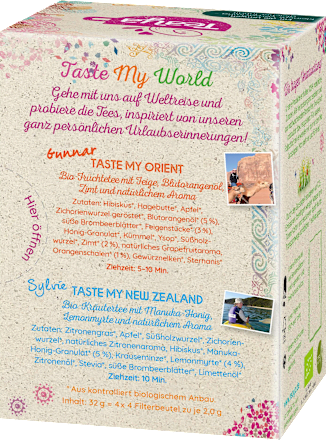 Taste My World
Gehe mit uns auf Weltreise und
probiere die Tees, inspiriert von unseren
ganz persönlichen Urlaubserinnerungen!
Gunnar
TASTE MY ORIENT
Bio Früchtetee mit Feige, Blutorangenöl,
Zimt und natürlichem Aroma
Zutaten: Hibiskus*, Hagebutte*, Apfel*,
Zichorienwurzel geröstet*, Blutorangenöl* (5 %),
süße Brombeerblätter*, Feigenstücke* (3 %),
Honig-Granulat*, Kümmel*, Ysop*, Süßholz-
wurzel*, Zimt* (2 %), natürliches Grapefruitaroma,
Orangenschalen* (1 %), Gewürznelken*, Sternanis*
Ziehzeit: 5-10 Min.
Hier öffnen
Sylvie
TASTE MY NEW ZEALAND
Bio-Kräutertee mit Manuka-Honig,
Lemonmyrte und natürlichem Aroma
Zutaten: Zitronengras*, Apfel*, Süßholzwurzel*, Zichorien-
wurzel*, natürliches Zitronenaroma, Hibiskus*, Manuka-
Honig-Granulat* (5 %), Krauseminze*, Lemonmyrte* (4 %),
Zitronenöl*, Stevia*, süße Brombeerblätter*, Limettenöl*
Ziehzeit: 10 Min.
*Aus kontrolliert biologischem Anbau
Inhalt: 32 g = 4x 4 Filterbeutel zu je 2,0 g